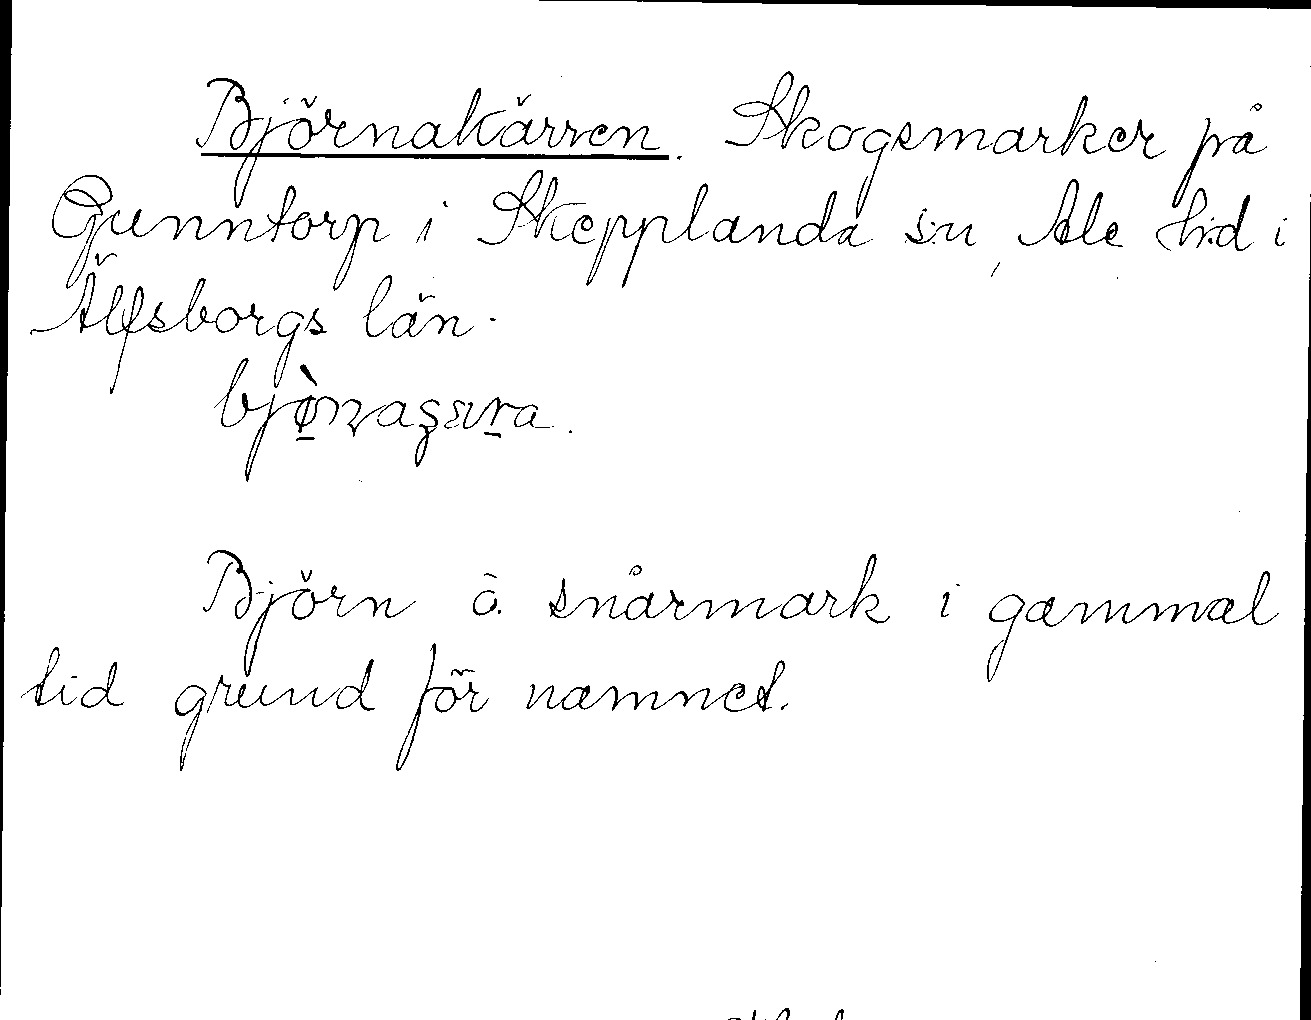 Björnakärren. Skogsmarker på
Gunntorp i Skepplanda s:n, Ale h:d i
Älfsborgs län.
Björn o. snårmark i gammal
tid grund för namnet.